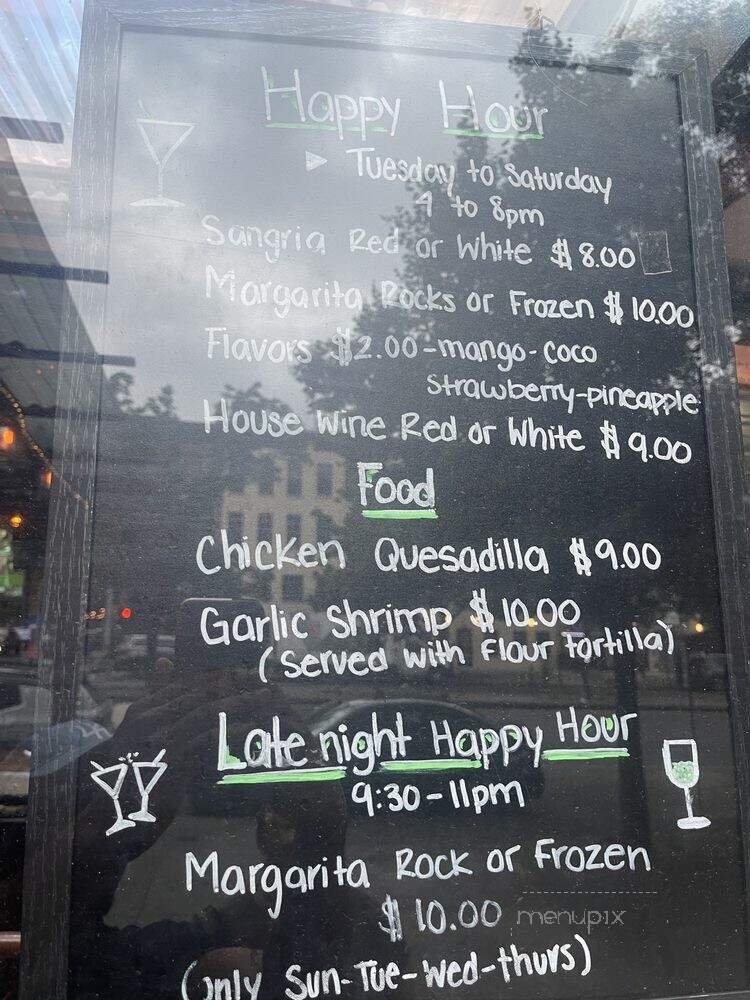 Happy Hour
Tuesday to Saturday
4 to 8pm
Sangria Red or White $8.00
Margarita Rocks or Frozen $10.00
Flavors $2.00-mango-coco
strawberry-pineapple
House Wine Red or White $9.00
Food
Chicken Quesadilla $9.00
Garlic Shrimp $10.00
(Served with flour tortilla)
Late night Happy Hour
9:30-11pm
Margarita Rock or Frozen
$10.00
menupix
(only Sun-Tue-Wed-thurs)